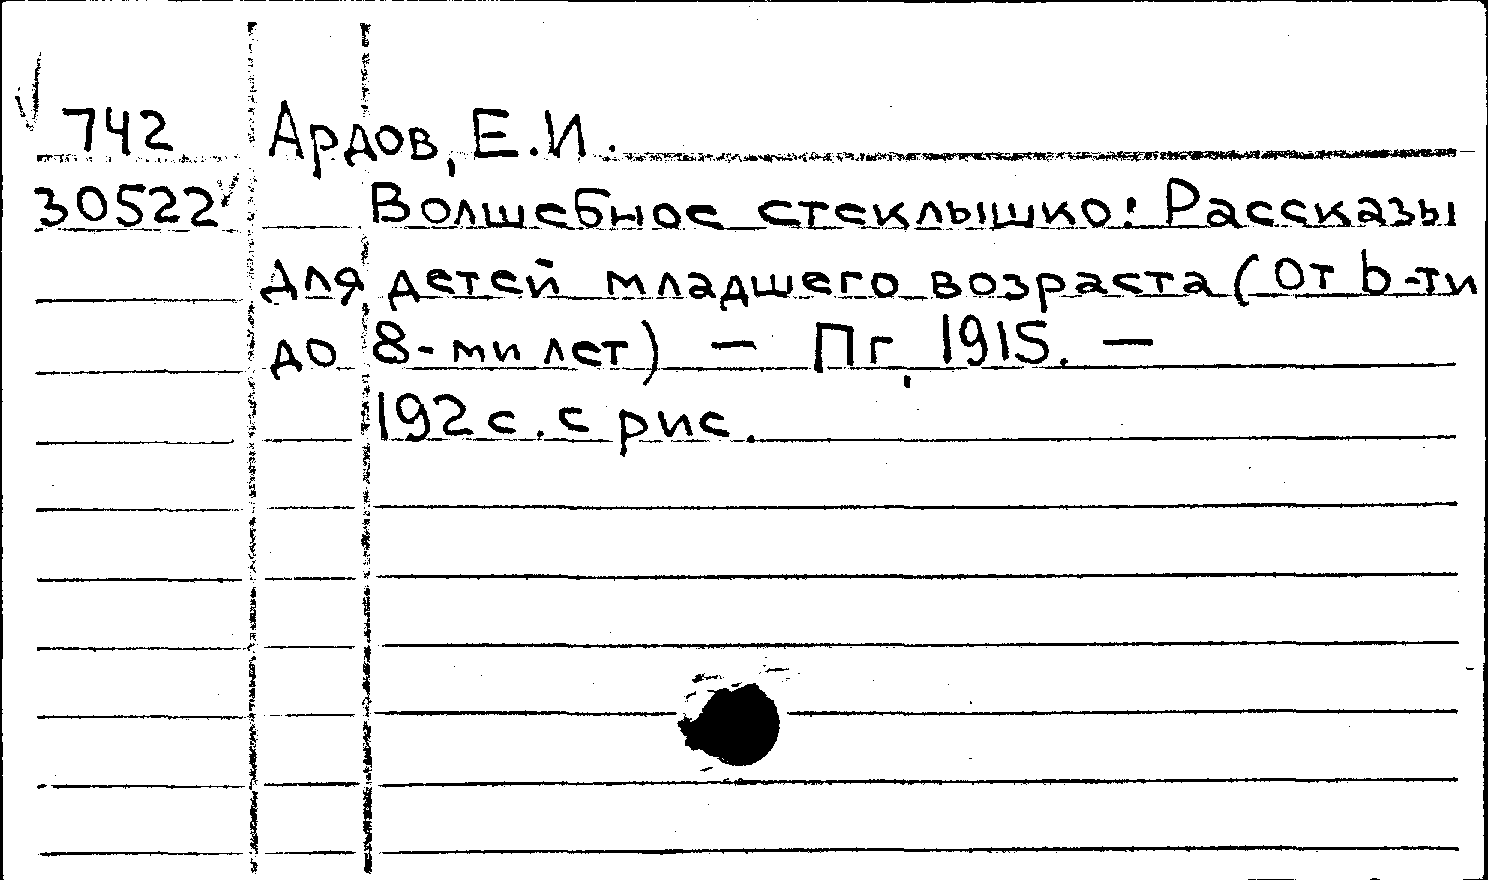 742 Ардов, Е.И.
30522 Волшебное стеклышко: Рассказы
для детей младшего возраста (от 6-ти
до 8-ми лет) — Пг, 1915. —
192 с. с рис.